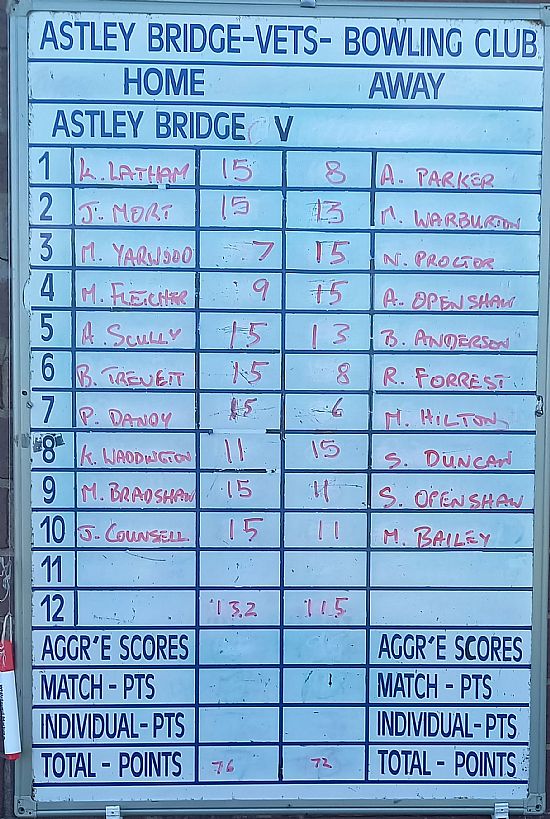 ASTLEY BRIDGE-VETS- BOWLING CLUB
HOME AWAY
ASTLEY BRIDGE V
1 K. LATHAM 15 8 A. PARKER
2 J. MORT 15 13 M. WARBURTON
3 M. YARWOOD 7 15 N. PROCTOR
4 M. FLETCHER 9 15 A. OPENSHAW
5 A. SCULLY 15 13 B. ANDERSON
6 B. TREVETT 15 8 R. FORREST
7 P. DANDY 15 6 M. HILTON
8 K. WADDINGTON 11 15 S. DUNCAN
9 M. BRADSHAW 15 11 S. OPENSHAW
10 J. COUNSELL 15 11 M. BAILEY
11
12 132 115
AGGR'E SCORES AGGR'E SCORES
MATCH - PTS MATCH - PTS
INDIVIDUAL - PTS INDIVIDUAL - PTS
TOTAL - POINTS 76 72 TOTAL - POINTS